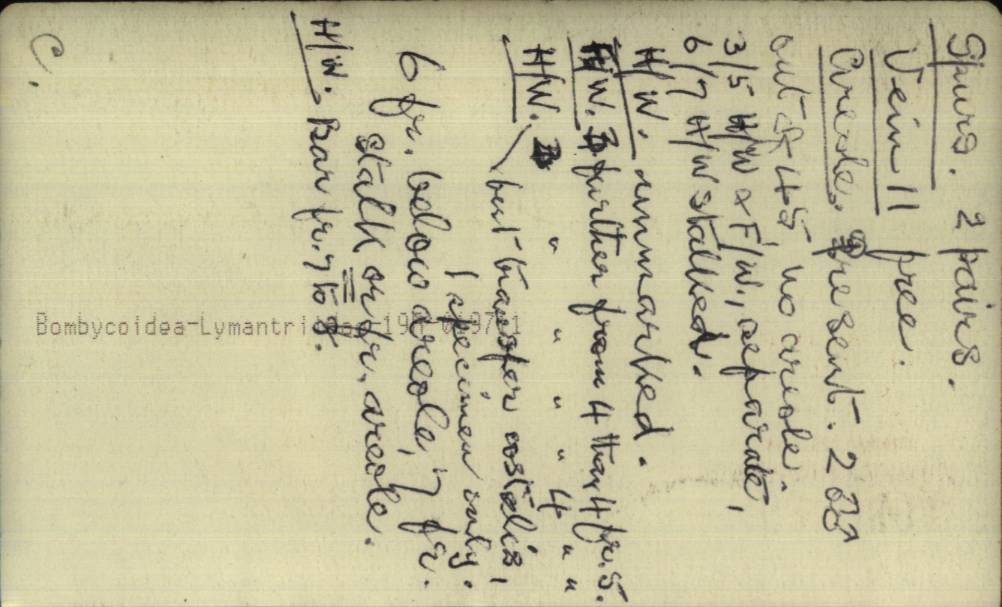 Spurs. 2 pairs.
Vein 11 free.
Areole, Present. 2
out of 45 no areole.
3/5 H/W & F/W, separate,
6/7 H/W stalked.
H/W. unmarked.
H/W. 3 further from 4 than 4 fr. 5.
H/W. 3 " " " " 4 " "
but transfer costalis,
1 specimen only.
6 fr. below areole, 7 fr.
stalk or fr. areole.
H/W. Bar fr. 7 to 8.
C.
Bombycoidea-Lymantriidae-19